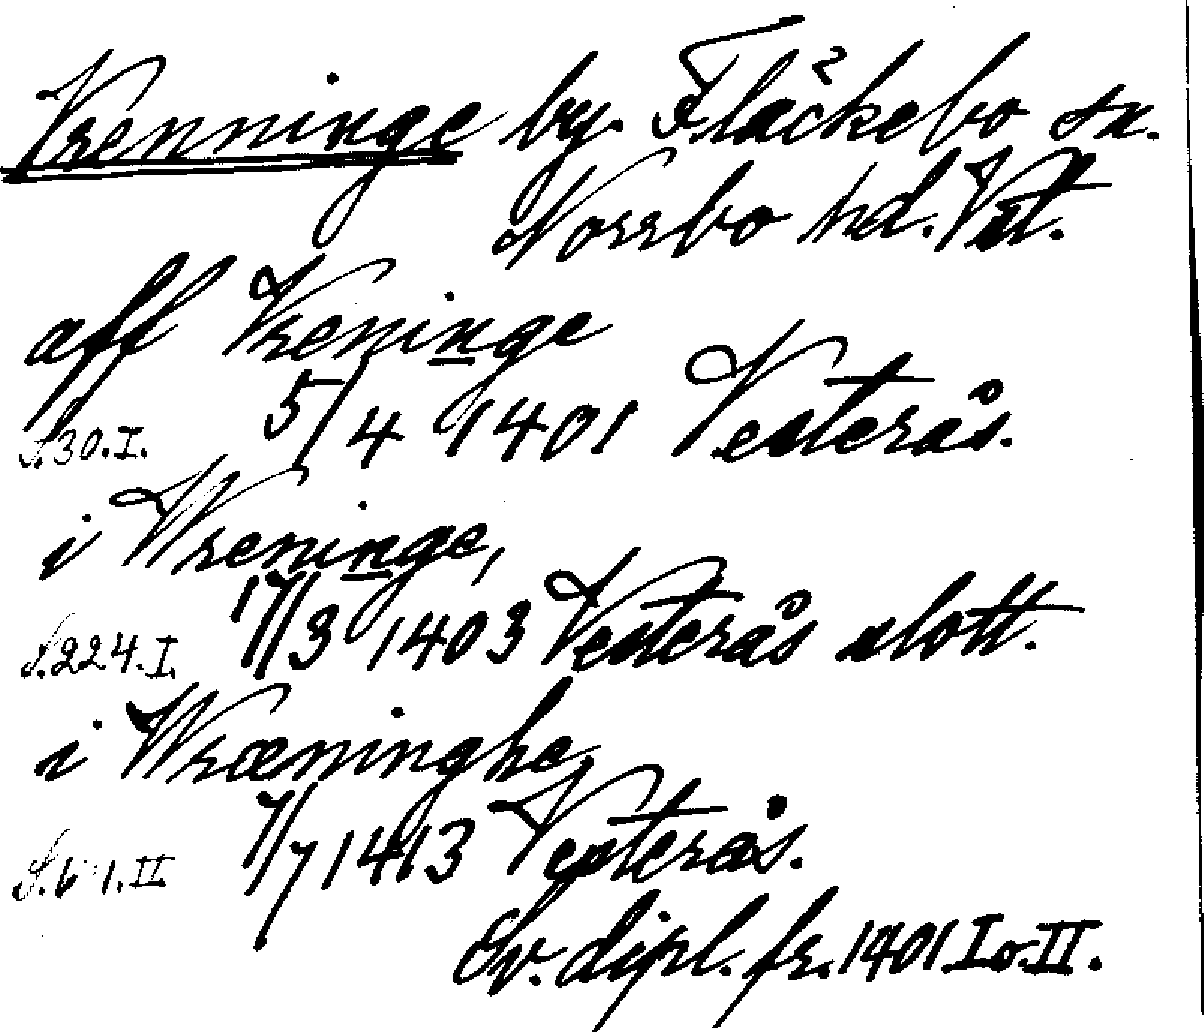 Vrenninge by. Fläckebo sn.
Norrbo hd. Vstl.
aff Vreninge
S.30.I. 5/4 1401 Vesterås.
i Wreninge,
S.224.I. 17/3 1403 Vesterås slott.
i Wræninghe
7/7 1413 Vesterås.
Sv. dipl. fr. 1401 I o. II.